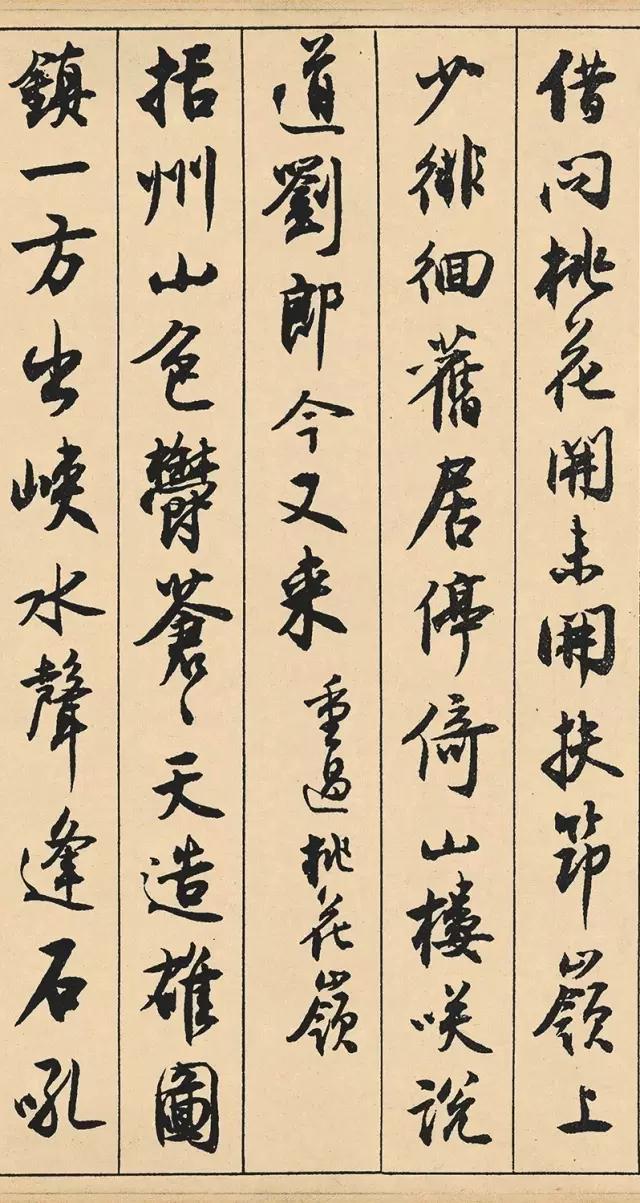 借問桃花開未開扶筇嶺上
少徘徊舊居停倚山樓咲說
道劉郎今又来重過桃花嶺
括州山色鬱蒼〻天造雄圖
鎮一方出峽水聲逢石吼